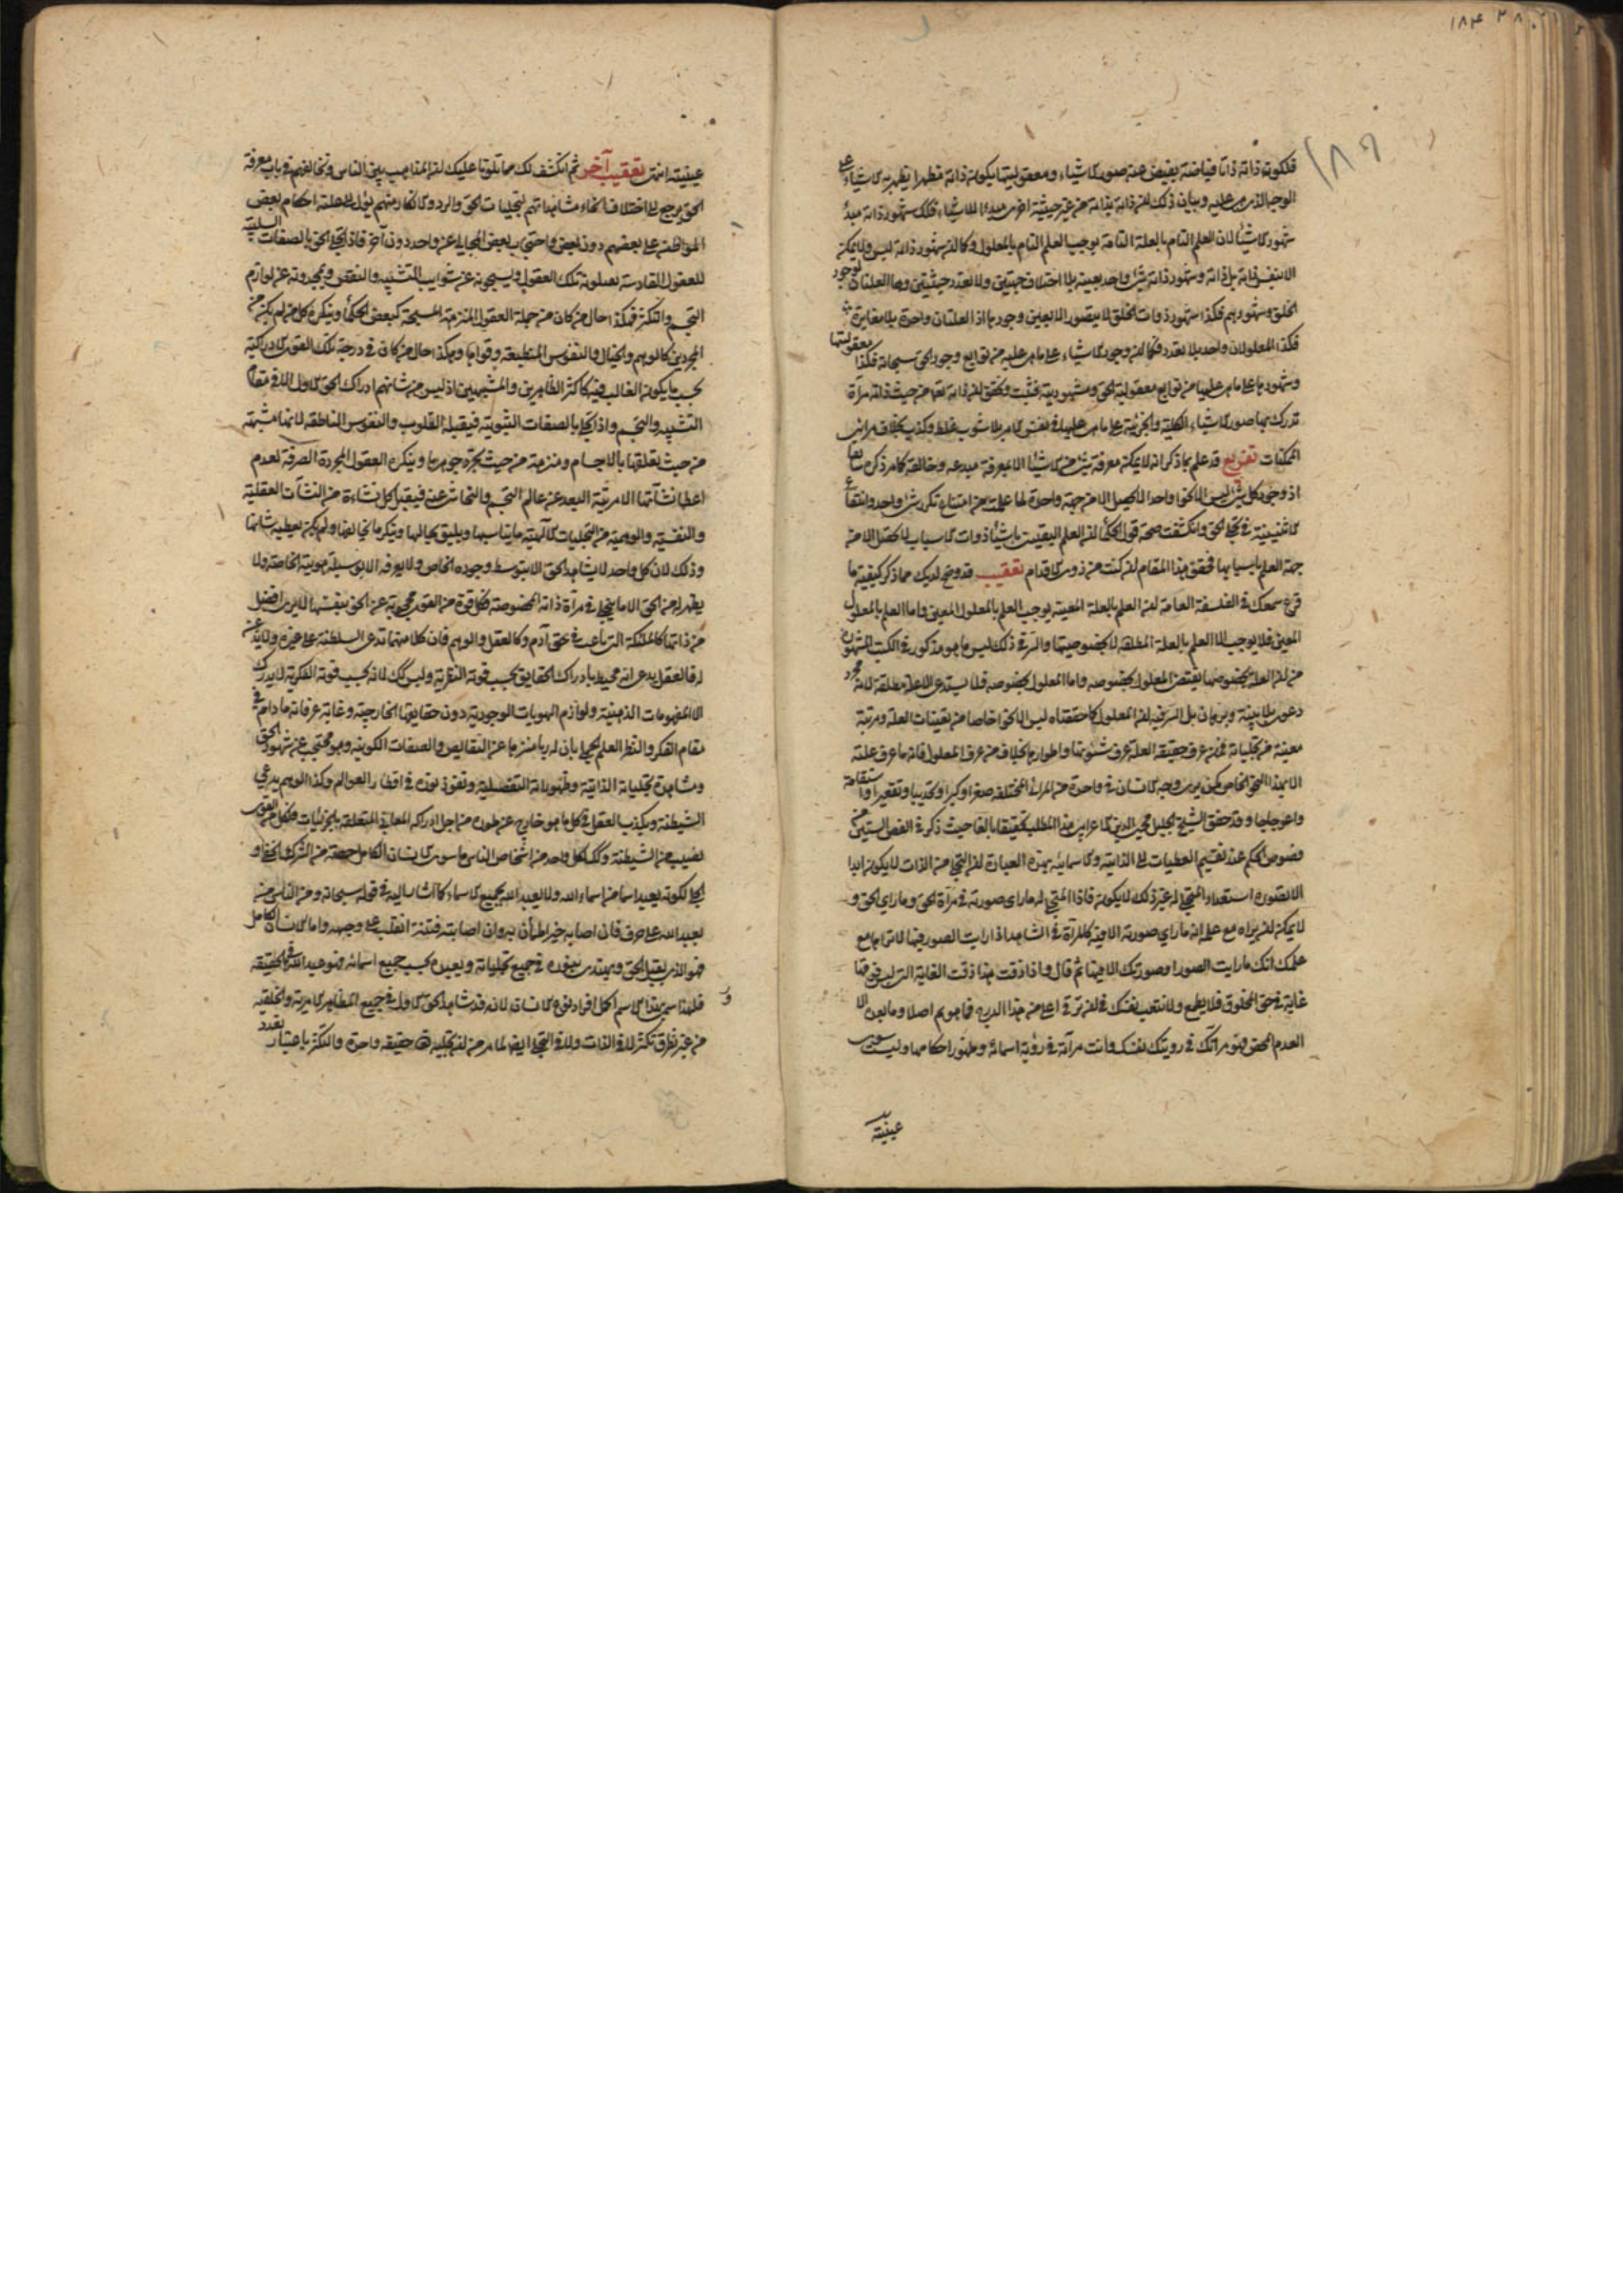 فلكونه ذاته ذاتا فياضة يفيض عنه صور الاشياء ومعقوليتها يكون ذاته مظهرا يظهر به الاشياء على
الوجه الذى هى عليه وبيان ذلك ان ذاته بذاته من غير حيثية اخرى مبدأ للاشياء فكك شهود ذاته مبدأ
شهود الاشياء لان العلم التام بالعلة التامة يوجب العلم التام بالمعلول وكما ان شهود ذاته ليس ولا يمكن
الا بنفس ذاته بل ذاته وشهود ذاته شئ واحد بعينه بلا اختلاف جهتين ولا تعدد حيثيتين وهما العلتان لوجود
الخلق وشهودهم فكذا شهود ذوات الخلق لا يتصور الا بعين وجودها اذ العلتان واحدة بلا مغايرة
فكذا المعلولان واحد بلا تعدد فكما ان وجود الاشياء على ما هى عليه من توابع وجود الحق سبحانه فكذا معقوليتها
وشهودها على ما هى عليها من توابع معقولية الحق ومشهوديته فثبت وتحقق ان ذاته تعالى من حيث ذاته مرآة
تدرك بها صور الاشياء الكلية والجزئية على ما هى عليها فى نفس الامر بلا شوب غلط وكذب بخلاف مرائى
الممكنات تفريع قد علم بما ذكر انه لا يمكن معرفة شئ من الاشياء الا بمعرفة مبدعه وخالقه كما مر ذكره سابقا
اذ وجود كل شئ ليس الا نحوا واحدا لا يحصل الا من جهة واحدة لما علمت من امتناع تكرر شئ واحد وانتفاء
الاثنينية فى تجلى الحق وانكشفت صحة قول الحكماء ان العلم اليقينى باشياء ذوات الاسباب لا يحصل الا من
جهة العلم باسبابها فحقق هذا المقام ان كنت من ذوى الاقدام تعقيب قد وضح لديك مما ذكر كيفية ما
قرع سمعك فى الفلسفة العامة ان العلم بالعلة المعينة يوجب العلم بالمعلول المعين واما العلم بالمعلول
المعين فلا يوجب الا العلم بالعلة المطلقة لا بخصوصيتها والسر فى ذلك ليس ما هو مذكور فى الكتب المشهورة
من ان العلة بخصوصها يقتضى المعلول بخصوصه واما المعلول بخصوصه فلا يستدعى الا علة مطلقة لانه مجرد
دعوى بلا بينة وبرهان بل السر فيه ان المعلول كما حققناه ليس الا نحوا خاصا من تعينات العلة ومرتبة
معينة من تجلياته فمن عرف حقيقة العلة عرف شئونها واطوارها بخلاف من عرف المعلول فانه ما عرف علته
الا بهذا النحو الخاص كمن يرى وجه الانسان فى واحدة من المرائى المختلفة صغرا وكبرا وتحديبا وتقعيرا واستقامة
واعوجاجا وقد حقق الشيخ الجليل محيى الدين الاعرابى هذا المطلب تحقيقا بالغا حيث ذكر فى الفص الشيثى من
فصوص الحكم عند تقسيم العطيات الى الذاتية والاسمائية بهذه العبارة ان التجلى من الذات لا يكون ابدا
الا بصورة استعداد المتجلى له غير ذلك لا يكون فاذا المتجلى له ما راى صورته فى مرآة الحق وما راى الحق و
لا يمكن ان يراه مع علمه انه ما راى صورته الا فيه كالمرآة فى الشاهد اذا رايت الصور فيها لا تراها مع
علمك انك ما رايت الصور او صورتك الا فيها ثم قال واذا ذقت هذا ذقت الغاية التى ليس فوقها
غاية فى حق المخلوق فلا تطمع ولا تتعب نفسك فى ان ترقى اعلى من هذا الدرج فما هو ثم اصلا وما بعده الا
العدم المحض فهو مرآتك فى رويتك نفسك وانت مرآته فى رؤية اسمائه وظهور احكامها وليست سوى
عينه
عينيته انتهى تعقيب آخر ثم انكشف لك مما تلونا عليك ان المذاهب بين الناس وتخالفهم فى باب معرفة
الحق يرجع الى اختلاف انحاء مشاهداتهم لتجليات الحق والرد والانكار منهم يؤل الى غلبة احكام بعض
المواطن على بعضهم دون بعض واحتجاب بعض المجالى عن واحد دون آخر فاذا تجلى الحق بالصفات السلبية
للعقول القادسة تقبلونه تلك العقول ويسبحونه عن شوايب التشبيه والنقص ويمجدونه عن لوازم
التجسم والتكثر فهكذا حال من كان من جملة العقول المنزهة المسبحة كبعض الحكماء وينكره كل من لم يكن من
المجردين كالوهم والخيال والنفوس المنطبعة وقواها وهكذا حال من كان فى درجة تلك القوى الادراكية
بحسب ما يكون الغالب فيه كاكثر الظاهريين والمشبهين اذ ليس من شانهم ادراك الحق الاول الا فى مقام
التشبيه والتجسم واذا تجلى بالصفات الثبوتية فيقبله القلوب والنفوس الناطقة لانها مشبهة
من حيث تعلقها بالاجسام ومنزهة من حيث تجرد جوهرها وينكره العقول المجردة الصرفة لعدم
اعطاء نشأتها الا مرتبة البعد عن عالم التجسم والتحاشى عنه فيقبل كل نشاءة من النشآت العقلية
والنفسية والوهمية من التجليات الالهية ما يناسبها ويليق بحالها وينكر ما يخالفها ولم يكن يعطيه شانها
وذلك لان كل واحد لا يشاهد الحق الا بتوسط وجوده الخاص ولا يعرفه الا بوسيلة هويته الخاصة ولا
يظهر له من الحق الا ما يتجلى فى مرآة ذاته المخصوصة فكل قوة من القوى محجوبة عن الحق بنفسها لا يرى افضل
من ذاتها كالملئكة التى نازعت فى حق آدم وكالعقل والوهم فان كلا منهما تدعى السلطنة على غيره ولا يذعن
له فالعقل يدعى انه محيط بادراك الحقايق بحسب قوته النظرية وليس كك لانه بحسب قوته الفكرية لا يدرك
الا المفهومات الذهنية ولوازم الهويات الوجودية دون حقايقها الخارجية وغاية عرفانه ما دام فى
مقام الفكر والنظر العلم الجملى بان له ربا منزها عن النقايص والصفات الكونية وهو محتجب عن شهود الحق
ومشاهدة تجلياته الذاتية وظهوراته التفصيلية ونفوذ نوره فى اقطار العوالم وكذا الوهم يدعى
الشيطنة ويكذب العقل فى كل ما هو خارج عن طوره من اجل ادراكه المعانى المتعلقة بالجزئيات فلكل من القوى
نصيب من الشيطنة وكك لكل واحد من اشخاص الناس ما سوى الانسان الكامل حصة من الشرك الخفى او
الجلى لكونه يعبد اسما من اسماء الله ولا يعبد الله بجميع الاسماء كما اشار اليه فى قوله سبحانه ومن الناس من
يعبد الله على حرف فان اصابه خير اطمأن به وان اصابته فتنة انقلب على وجهه واما الانسان الكامل
فهو الذى يقبل الحق ويهتدى بنوره فى جميع تجلياته ويعبده بحسب جميع اسمائه فهو عبد الله فى الحقيقة
فلهذا سمى بهذا الاسم اكمل افراد نوع الانسان لانه قد شاهد الحق الاول فى جميع المظاهر الامرية والخلقية
من غير تطرق تكثر لا فى الذات ولا فى التجلى ايضا لما مر من ان تجليه تعالى حقيقة واحدة والتكثر باعتبار تعدد